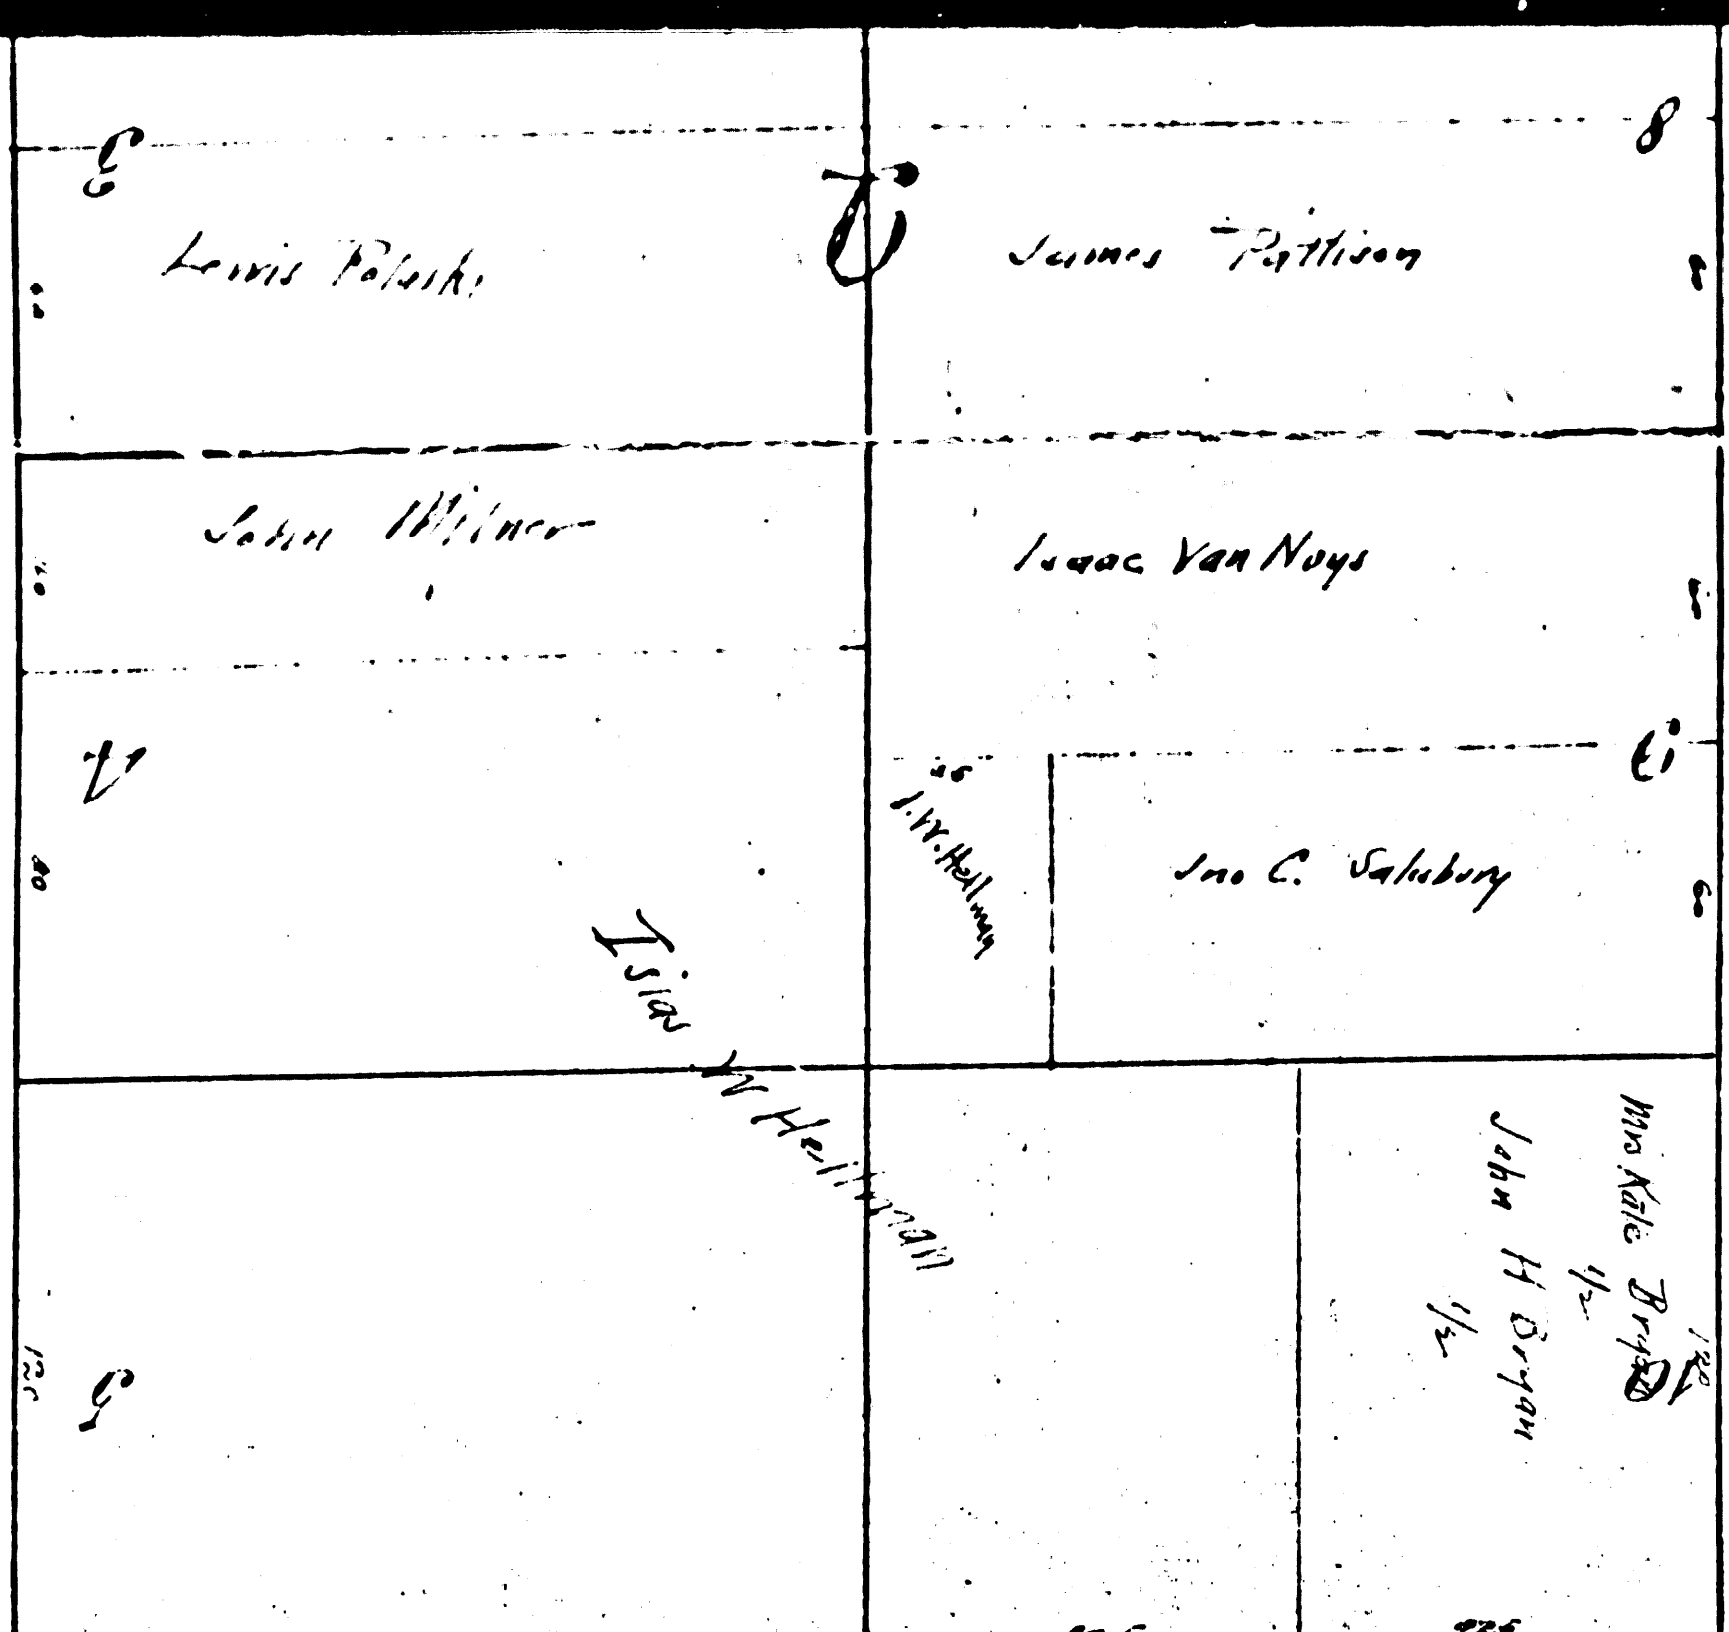 8
Lewis Poleski
James Pattison
John Milner
Isaac Van Nuys
7
I.W. Hellman
Jno C. Salusbury
60
Isias W Hellman
Mrs Kate Bryan
1/2
John H Bryan
1/2
120
5